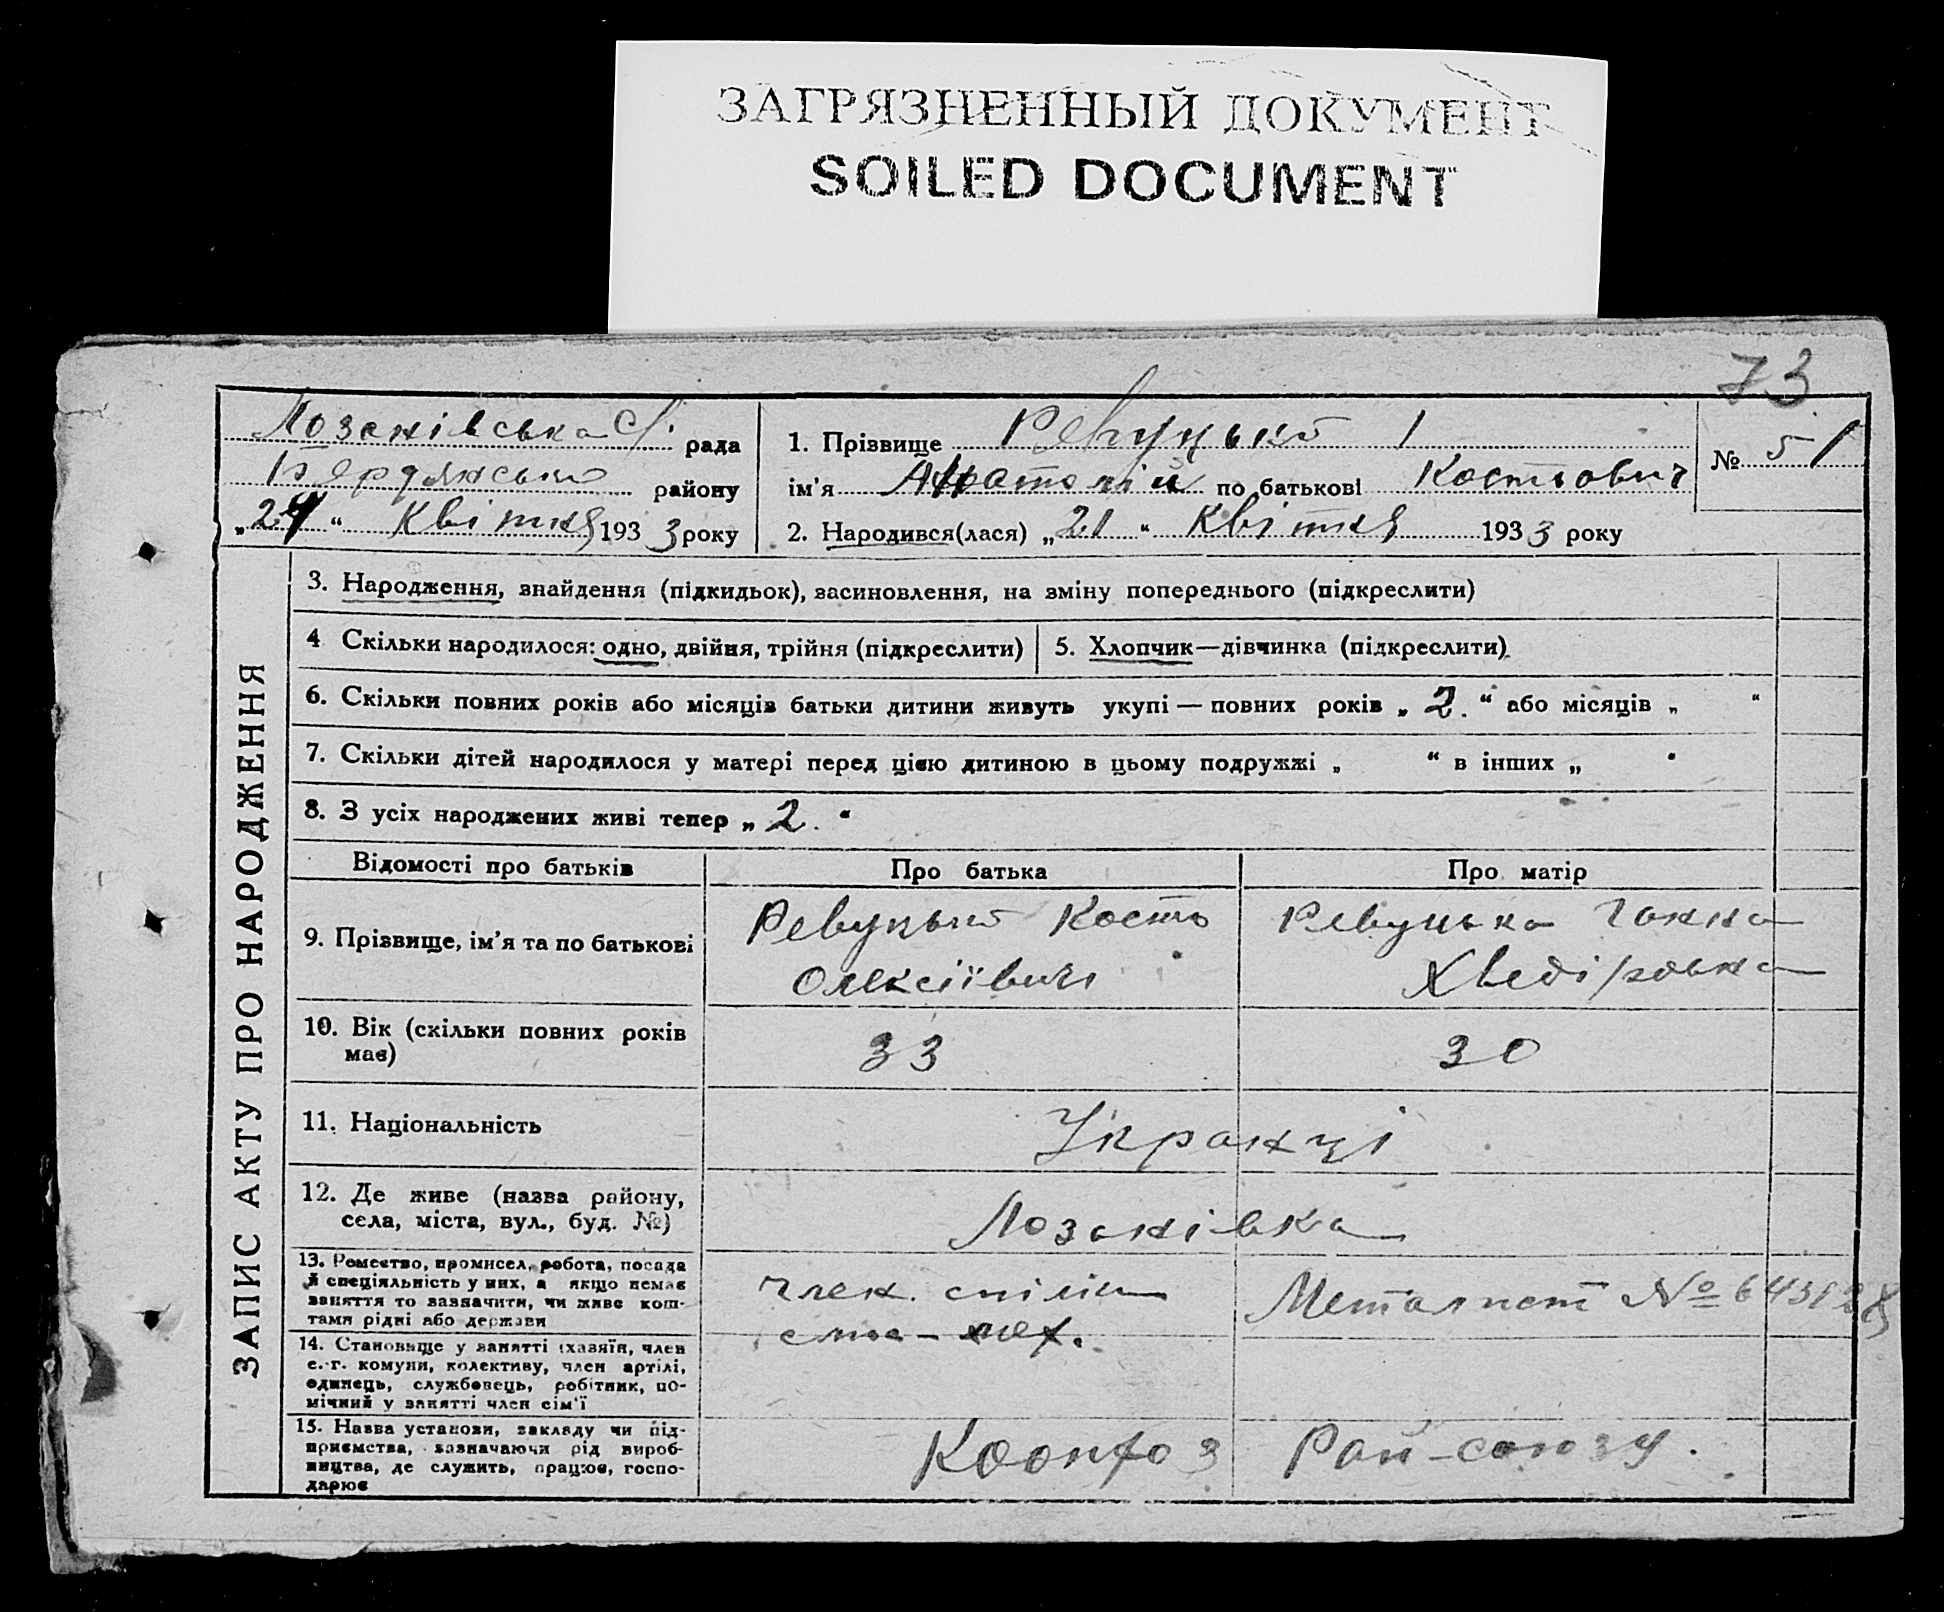 ЗАГРЯЗНЕННЫЙ ДОКУМЕНТ
SOILED DOCUMENT
73
Лозанівська с. рада
Бердянський району
„24“ Квітня 1933 року
1. Прізвище Ревуцький
ім'я Анатолій по батькові Костьович
2. Народився(лася) „21“ Квітня 1933 року
№ 51
ЗАПИС АКТУ ПРО НАРОДЖЕННЯ
3. Народження, знайдення (підкидьок), засиновлення, на зміну попереднього (підкреслити)
4 Скільки народилося: одно, двійня, трійня (підкреслити)
5. Хлопчик—дівчинка (підкреслити)
6. Скільки повних років або місяців батьки дитини живуть укупі — повних років „2.“ або місяців „ “
7. Скільки дітей народилося у матері перед цією дитиною в цьому подружжі „ “ в інших „ “
8. З усіх народжених живі тепер „2.“
Відомості про батьків
Про батька
Про матір
9. Прізвище, ім'я та по батькові
Ревуцький Кость
Олексійвич
Ревуцька Ганна
Хведірівна
10. Вік (скільки повних років
має)
33
30
11. Національність
Українці
12. Де живе (назва району,
села, міста, вул., буд. №)
Лозанівка
13. Ремество, промисел, робота, посада
й спеціяльність у них, а якщо немає
заняття то зазначити, чи живе кош-
тами рідні або держави
член. спілки
Металист № 643128
14. Становище у занятті (хазяїн, член
с.-г. комуни, колективу, член артілі,
одинець, службовець, робітник, по-
мічний у занятті член сім'ї
15. Назва установи, закладу чи під-
приємства, зазначаючи рід вироб-
ництва, де служить, працює, госпо-
дарює
Коопхоз Рай-союзу.